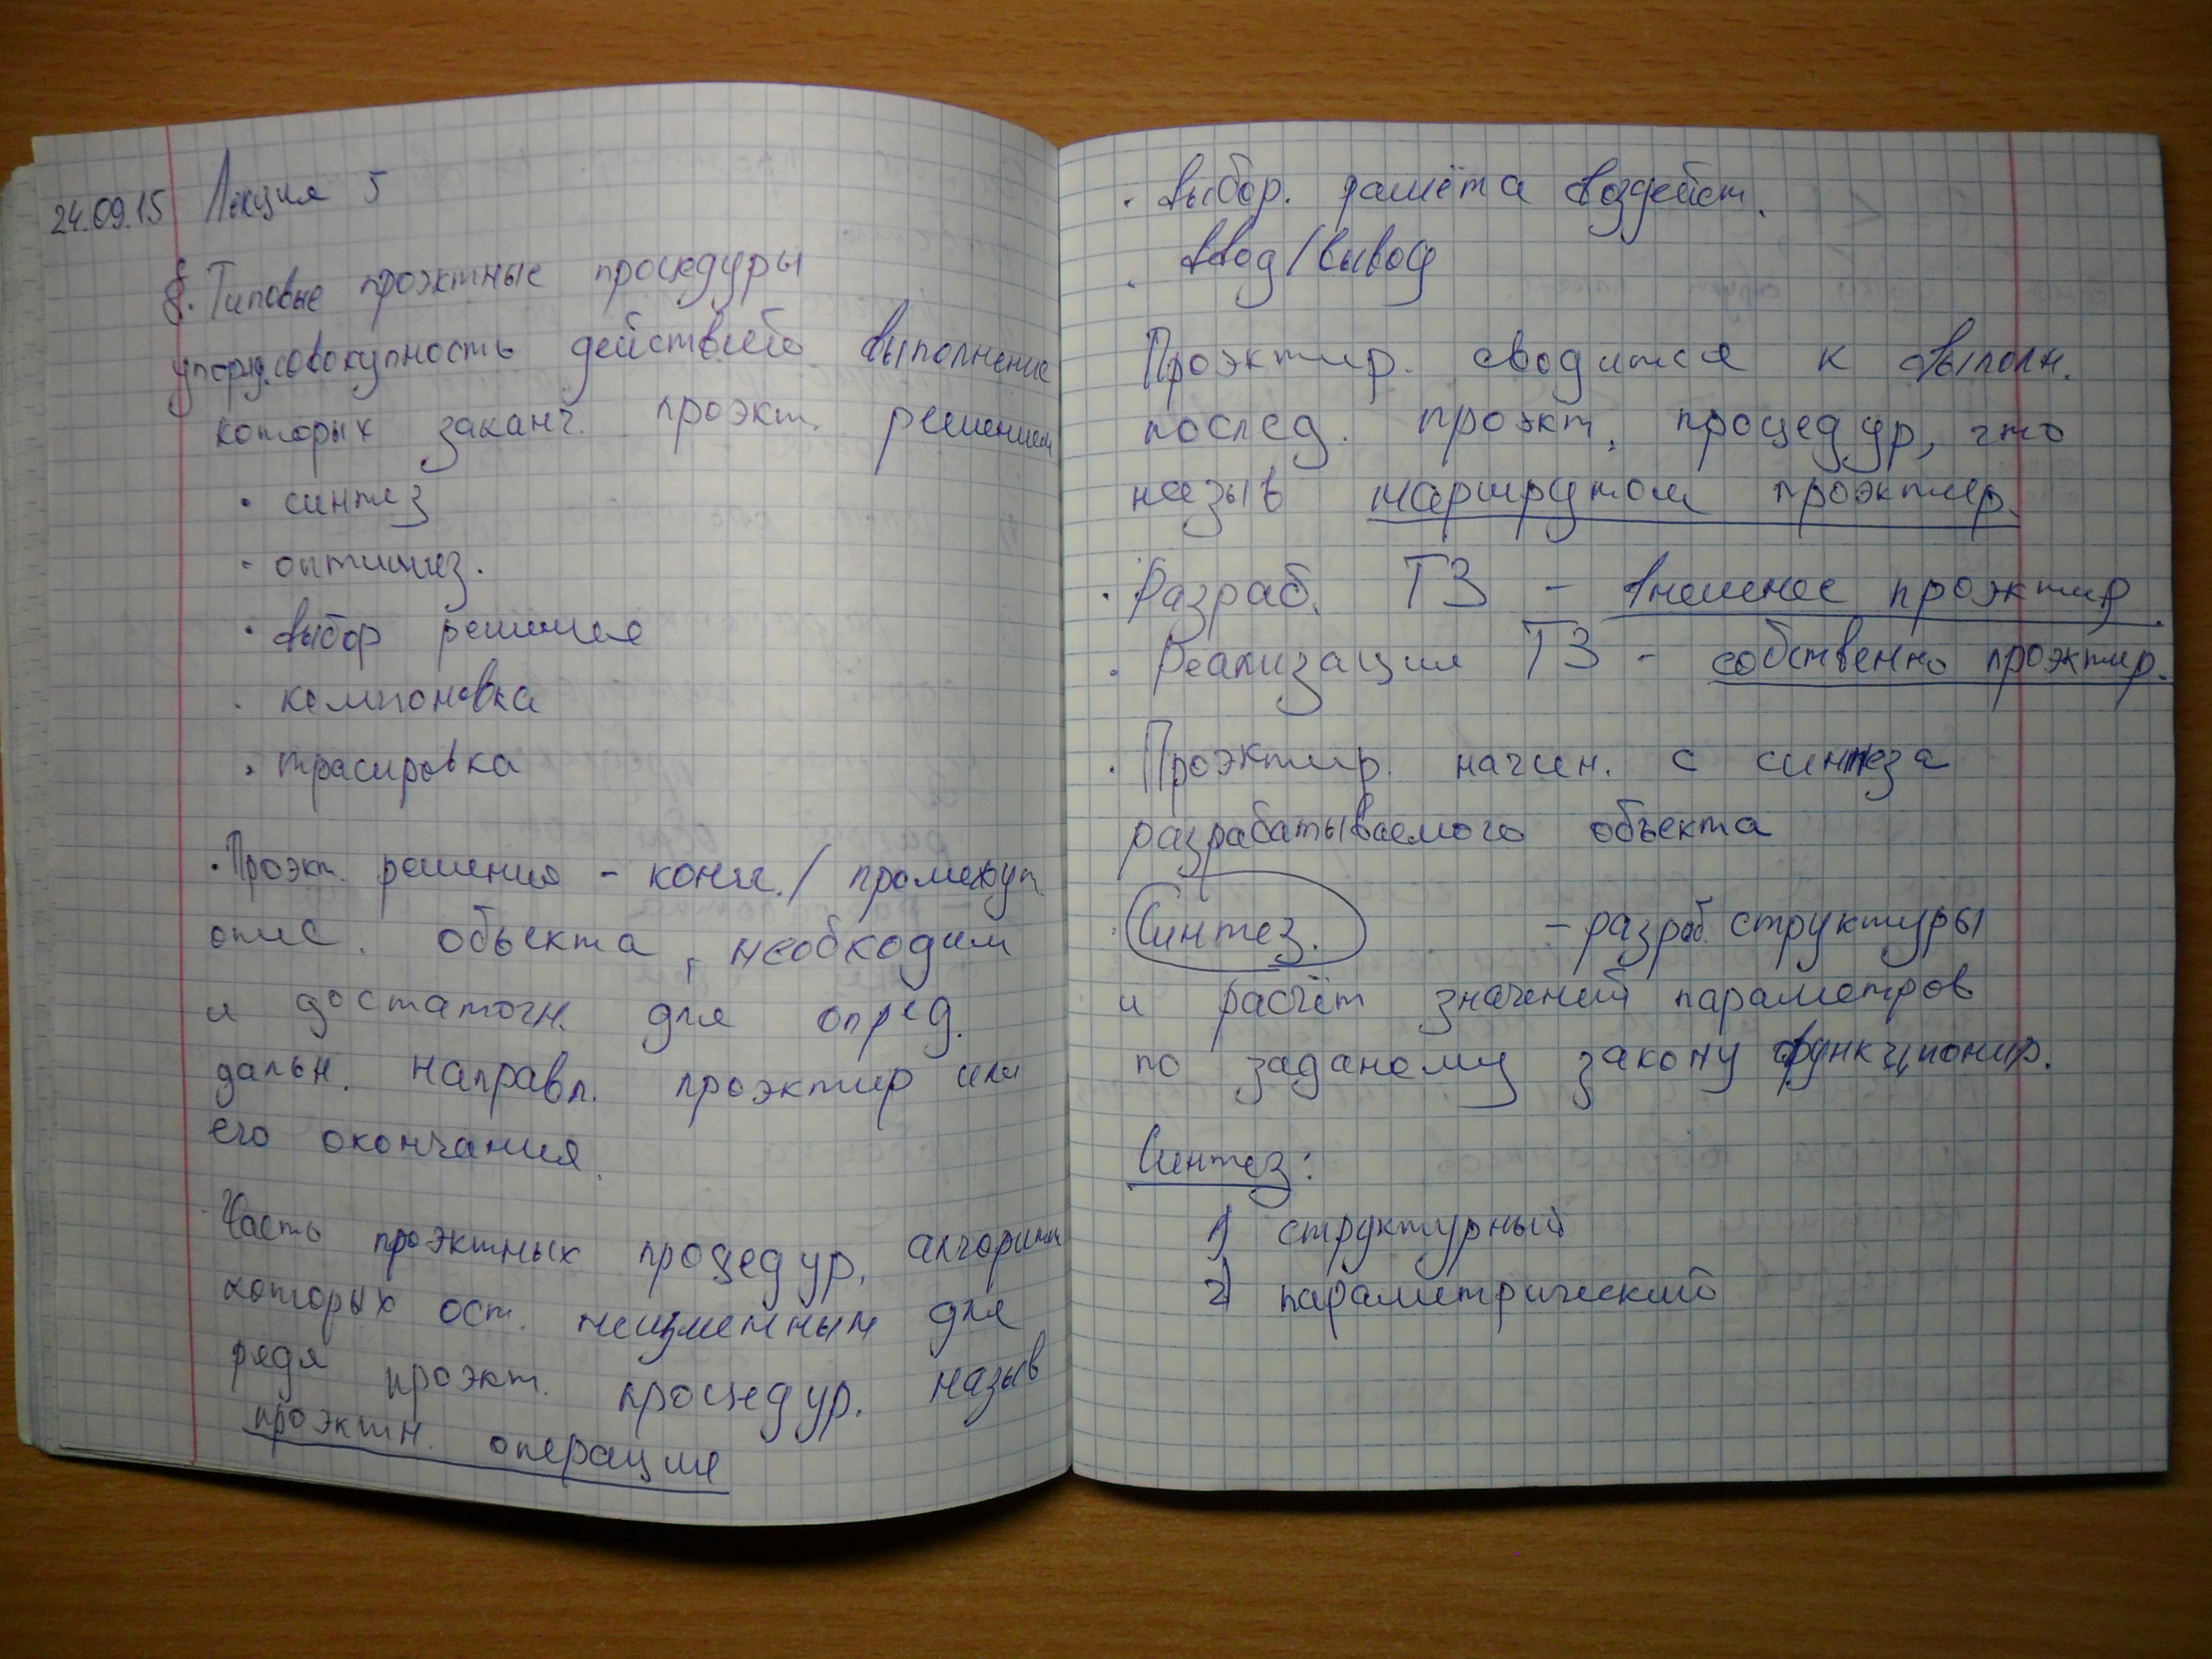 24.09.15 Лекция 5
§. Типовые проэктные процедуры
упоряд. совокупность действий выполнение
которых заканч. проэкт. решением
· синтез
· оптимиз.
· выбор решения
· компоновка
· трасировка
· Проэкт. решения - конеч. / промежут
опис. объекта, необходим
и достаточн. для опред.
дальн. направл. проэктир или
его окончания.
Часть проэктных процедур, алгоритм
которых ост. неизменным для
ряда проэкт. процедур. назыв
проэктн. операция
· выбор. воздейст.
· ввод/вывод
Проэктир. сводится к выполн.
послед. проэкт. процедур, что
назыв маршрутом проэктир.
· Разраб. ТЗ - внешнее проэктир.
· Реализация ТЗ - собственно проэктир.
· Проэктир. начин. с синтеза
разрабатываемого объекта
· Синтез. - разраб. структуры
и расчёт значений параметров
по заданому закону функционир.
Синтез:
1) структурный
2) параметрический